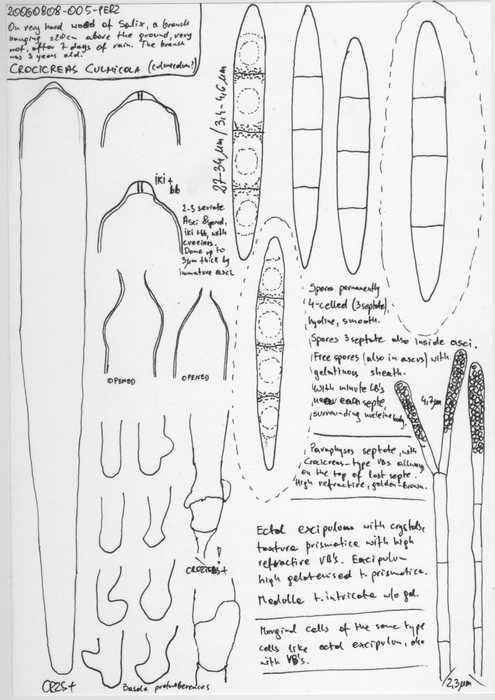 20060808-005-PEB2
On very hard wood of Salix, a branch
hanging ±20cm above the ground, very
wet, after 7 days of rain. The branch
was 3 years old.
CROCICREAS CULMICOLA (culmicolum?)
27-34 µm / 3,4-4,6 µm
iki +
bb
2-3 seriate
Asci 8 spored,
iki +bb, with
croziers.
Dome up to
3µm thick by
immature asci
OPENED
OPENED
Spores permanently
4-celled (3 septate),
hyaline, smooth.
Spores 3 septate also inside asci.
Free spores (also in ascus) with
gelatinous sheath.
With minute LB's
near each septe,
surrounding nucleine body.
4,7µm
Paraphyses septate, with
Crocicreas-type VBs allways
on the top of last septe.
High refractive, golden-brown.
CROZIERS +
Ectal excipulum with crystals,
textura prismatica with high
refractive VB's. Excipulum
high gelatenised t. prismatica.
Medulla t. intricata w/o gel.
Marginal cells of the same type
cells like ectal excipulum, also
with VB's.
CR2S+
Basale protuberences
2,3µm